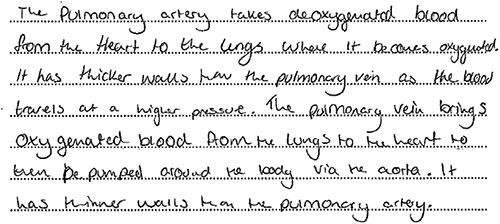 The Pulmonary artery takes deoxygenated blood
from the Heart to the lungs where it becomes oxygenated.
It has thicker walls than the pulmonary vein as the blood
travels at a higher pressure. The pulmonary vein brings
oxygenated blood from the lungs to the heart to
then be pumped around the body via the aorta. It
has thinner walls than the pulmonary artery.